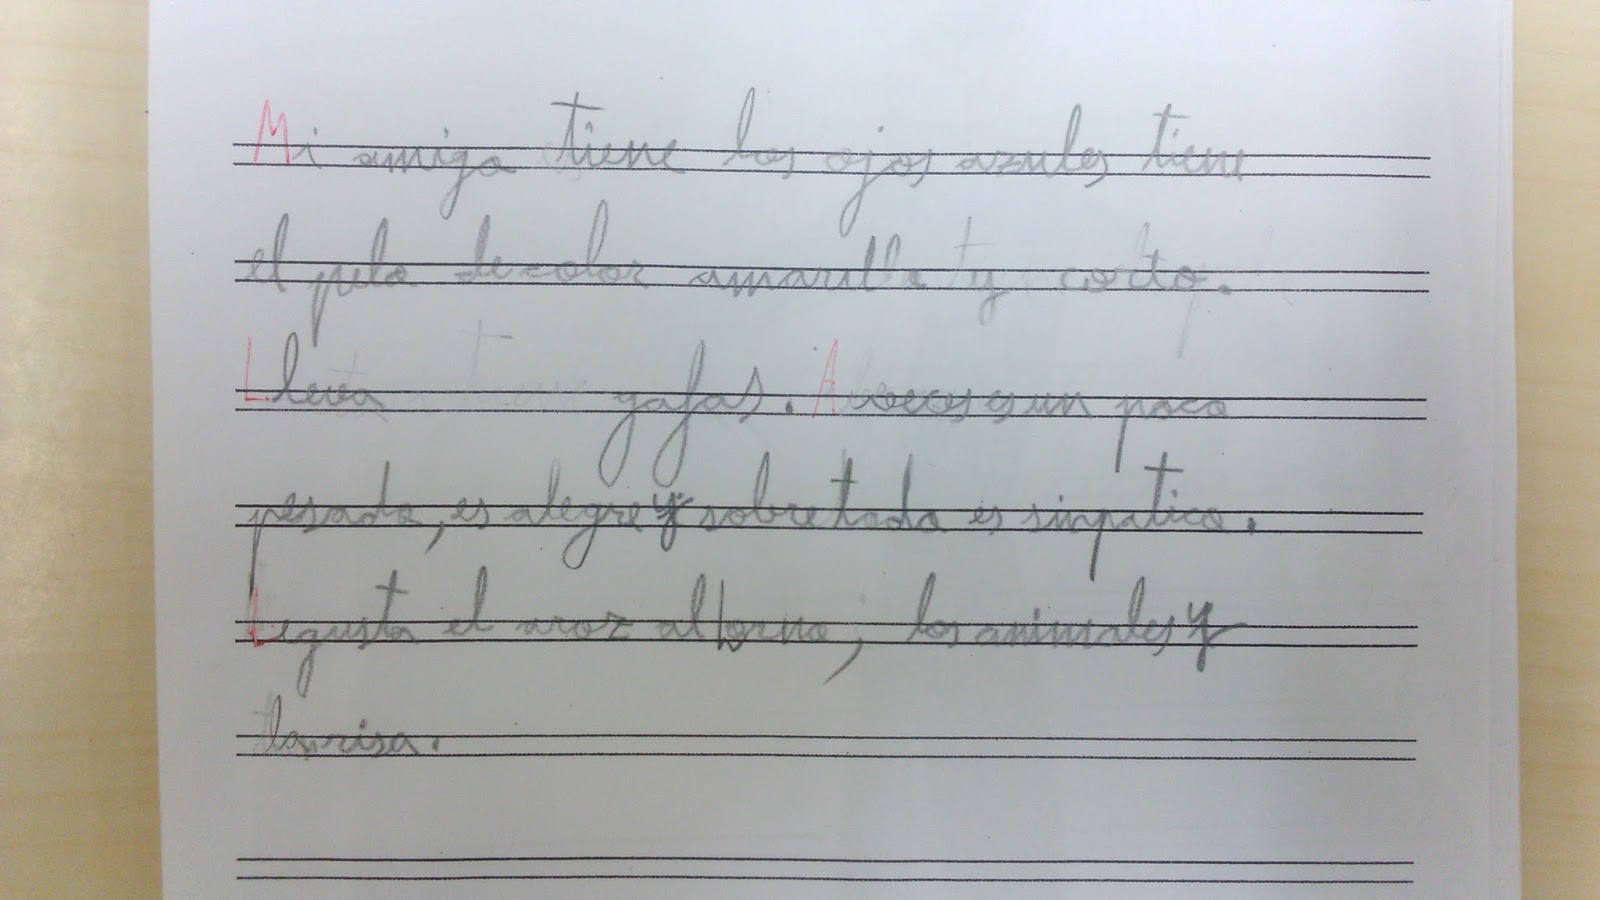 Mi amiga tiene los ojos azules tiene
el pelo de color amarillo y corto.
Lleva gafas. A veces es un poco
pesado, es alegre y sobre todo es sinpatico.
Le gusta el aroz al horno, los animales y
la risa.